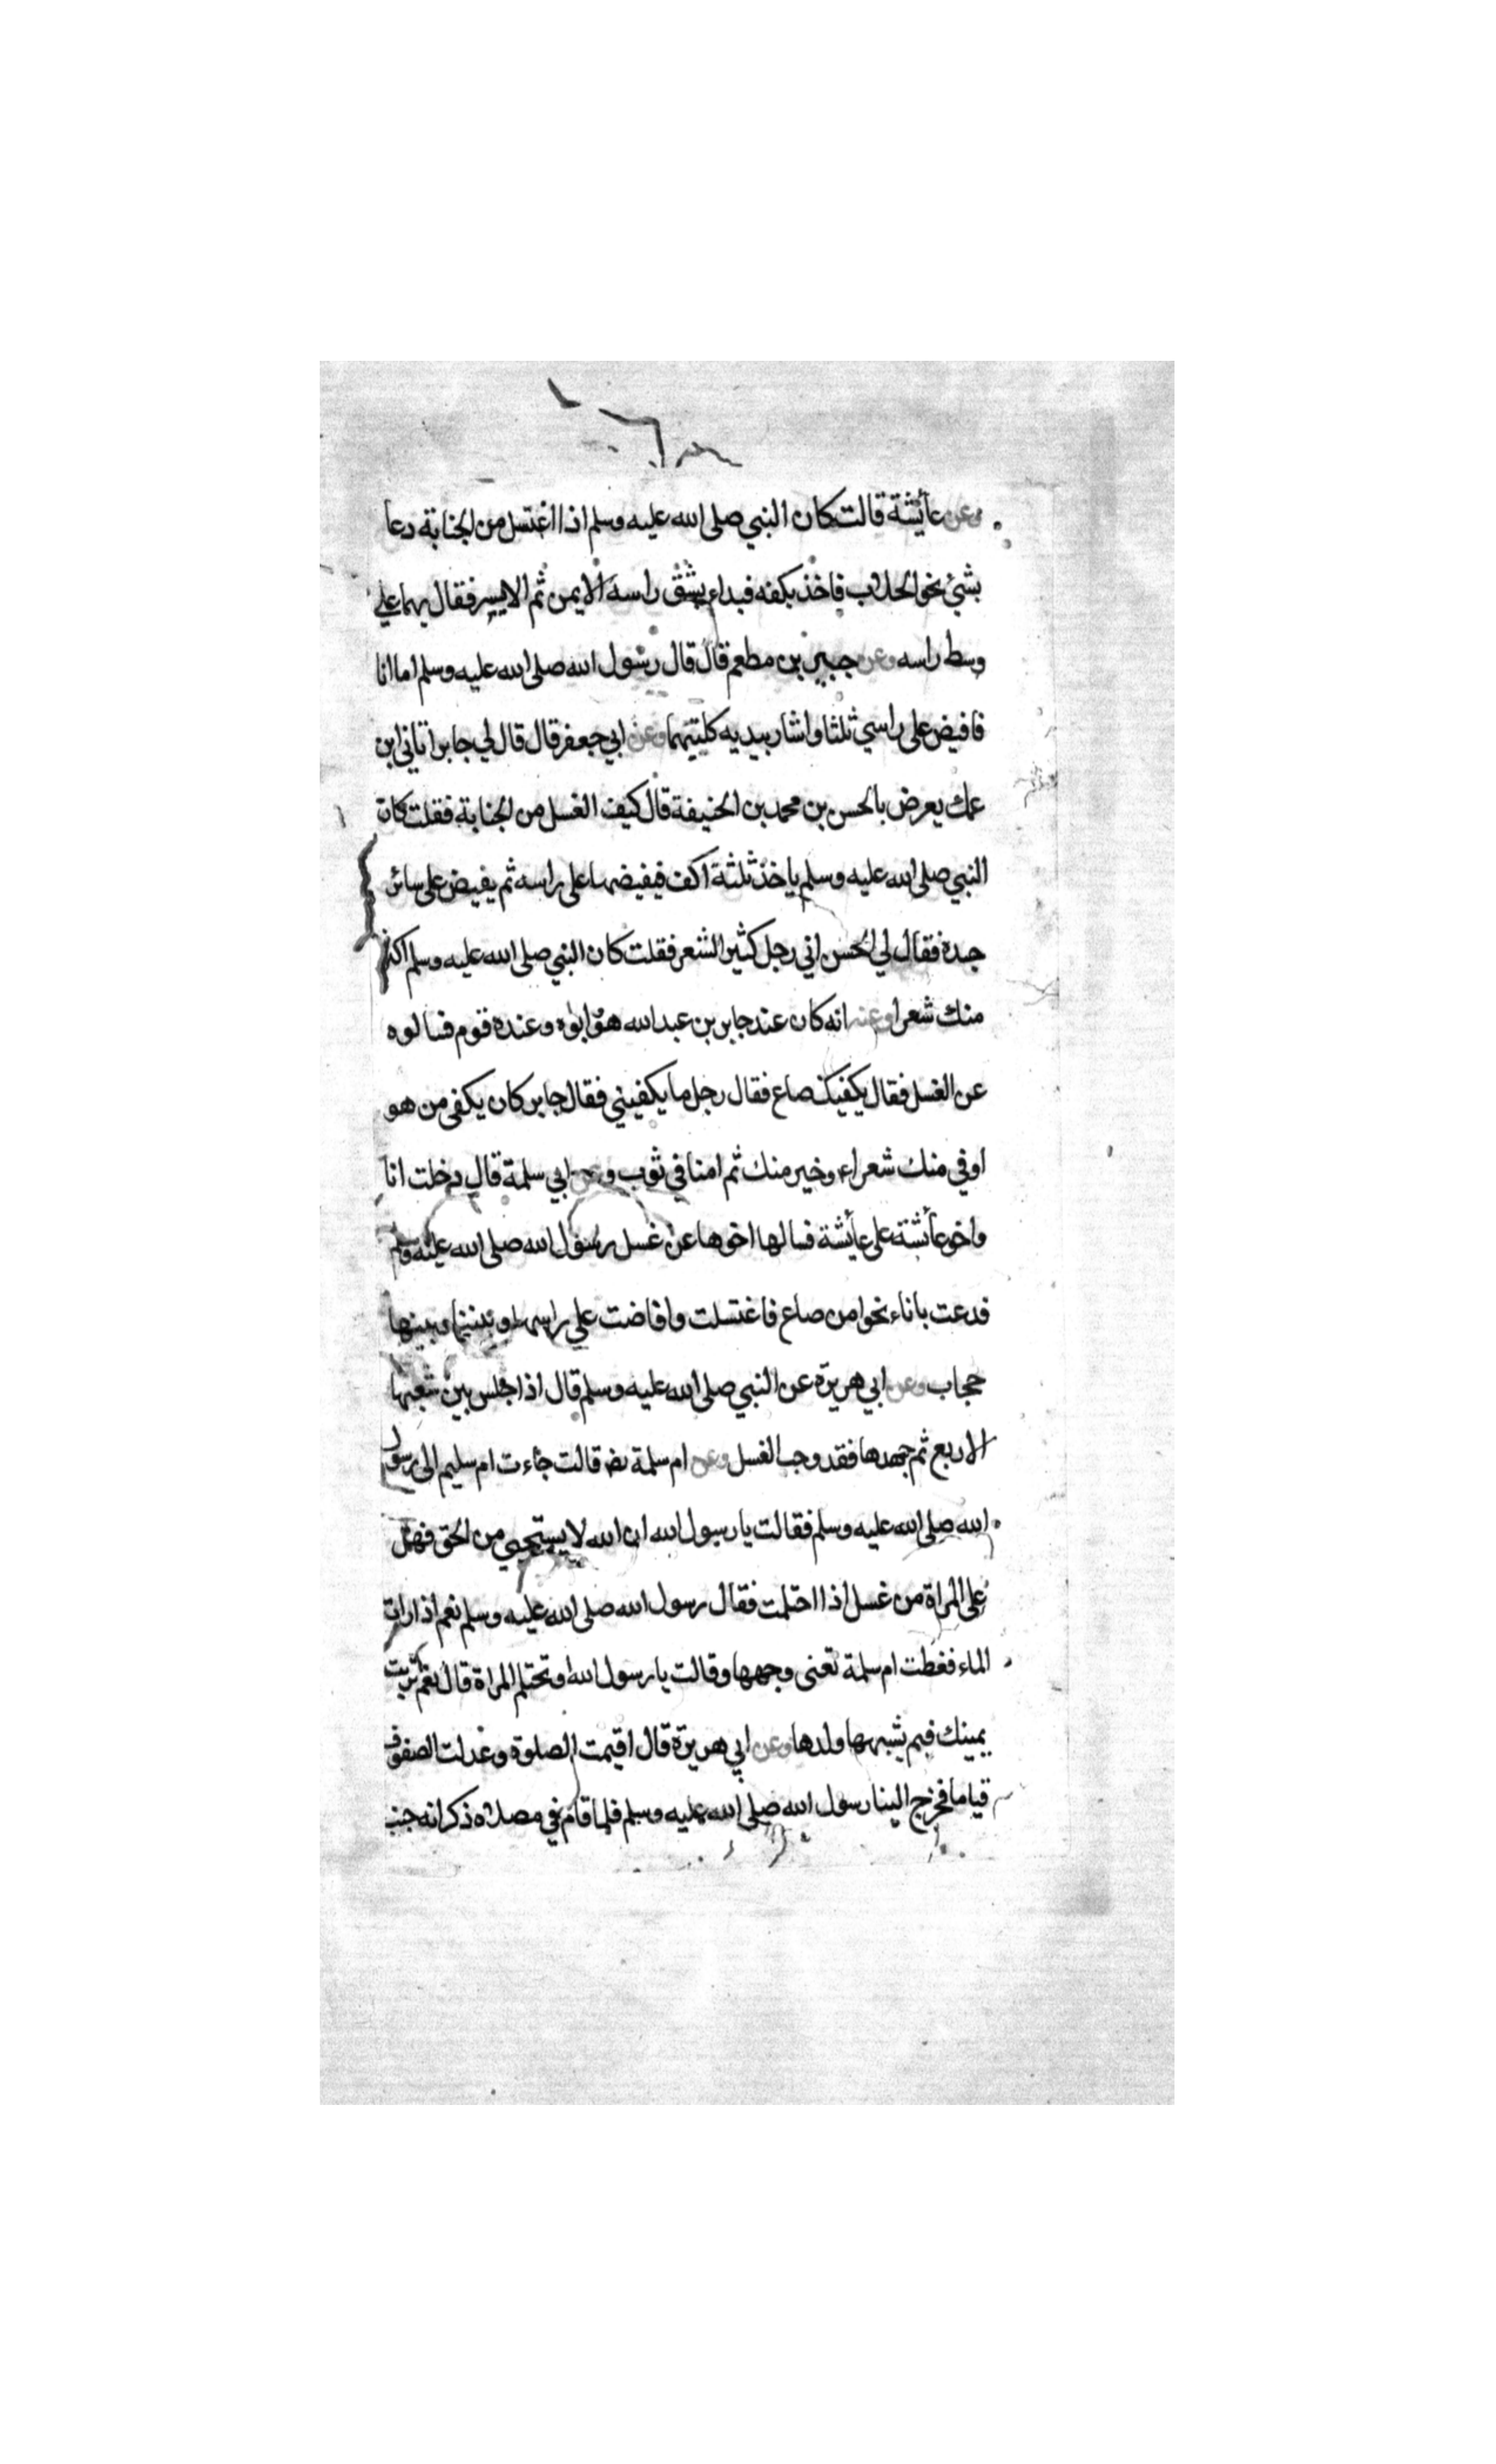 وعن عأيشة قالت كان النبي صلى الله عليه وسلم اذا اغتسل من الجنابة دعا
بشئ نحو الحلاب فاخذ بكفه فبداء بشق راسه الايمن ثم الايسر فقال بهما علي
وسط راسه وعن جبير بن مطعم قال قال رسول الله صلى الله عليه وسلم اما انا
فافيض على راسي ثلثا واشار بيديه كلتيهما وعن ابي جعفر قال قال لي جابر اتاني ابن
عمك يعرض بالحسن بن محمد بن الحنيفة قال كيف الغسل من الجنابة فقلت كان
النبي صلى الله عليه وسلم ياخذ ثلثة اكف فيفيضها على راسه ثم يفيض على سائر
جسده فقال لي الحسن اني رجل كثير الشعر فقلت كان النبي صلى الله عليه وسلم اكثر
منك شعرا وعنه انه كان عند جابر بن عبدالله هو وابوه وعنده قوم فسالوه
عن الغسل فقال يكفيك صاع فقال رجل ما يكفيني فقال جابر كان يكفى من هو
اوفي منك شعراء وخير منك ثم امنا في ثوب وعن ابي سلمة قال دخلت انا
واخو عأئشة على عأيشة فسالها اخوها عن غسل رسول الله صلى الله عليه وسلم
فدعت باناء نحوا من صاع فاغتسلت وافاضت علي راسها وبيننا وبينها
حجاب وعن ابي هريرة عن النبي صلى الله عليه وسلم قال اذا جلس بين شعبها
الاربع ثم جهدها فقد وجب الغسل وعن ام سلمة رضـ قالت جاءت ام سليم الى رسول
الله صلى الله عليه وسلم فقالت يا رسول الله ان الله لا يستحيي من الحق فهل
على المراة من غسل اذا احتلمت فقال رسول الله صلى الله عليه وسلم نعم اذا رات
الماء فغطت ام سلمة تعنى وجهها وقالت يا رسول الله وتحتلم المراة قال نعم تربت
يمينك فبم يشبهها ولدها وعن ابي هريرة قال اقيمت الصلوة وعدلت الصفوف
قياما فخرج الينا رسول الله صلى الله عليه وسلم فلما قام في مصلاه ذكر انه جنب